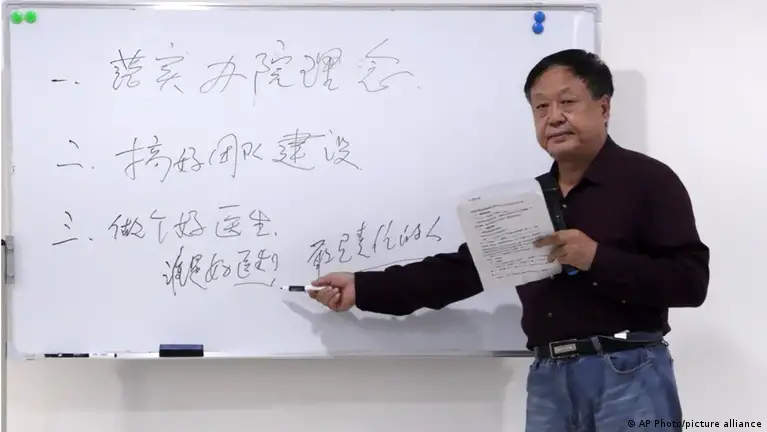 一、落实办院理念.
二、搞好团队建设
三、做个好医生.
谁是好医生?
负责任的人
© AP Photo/picture alliance